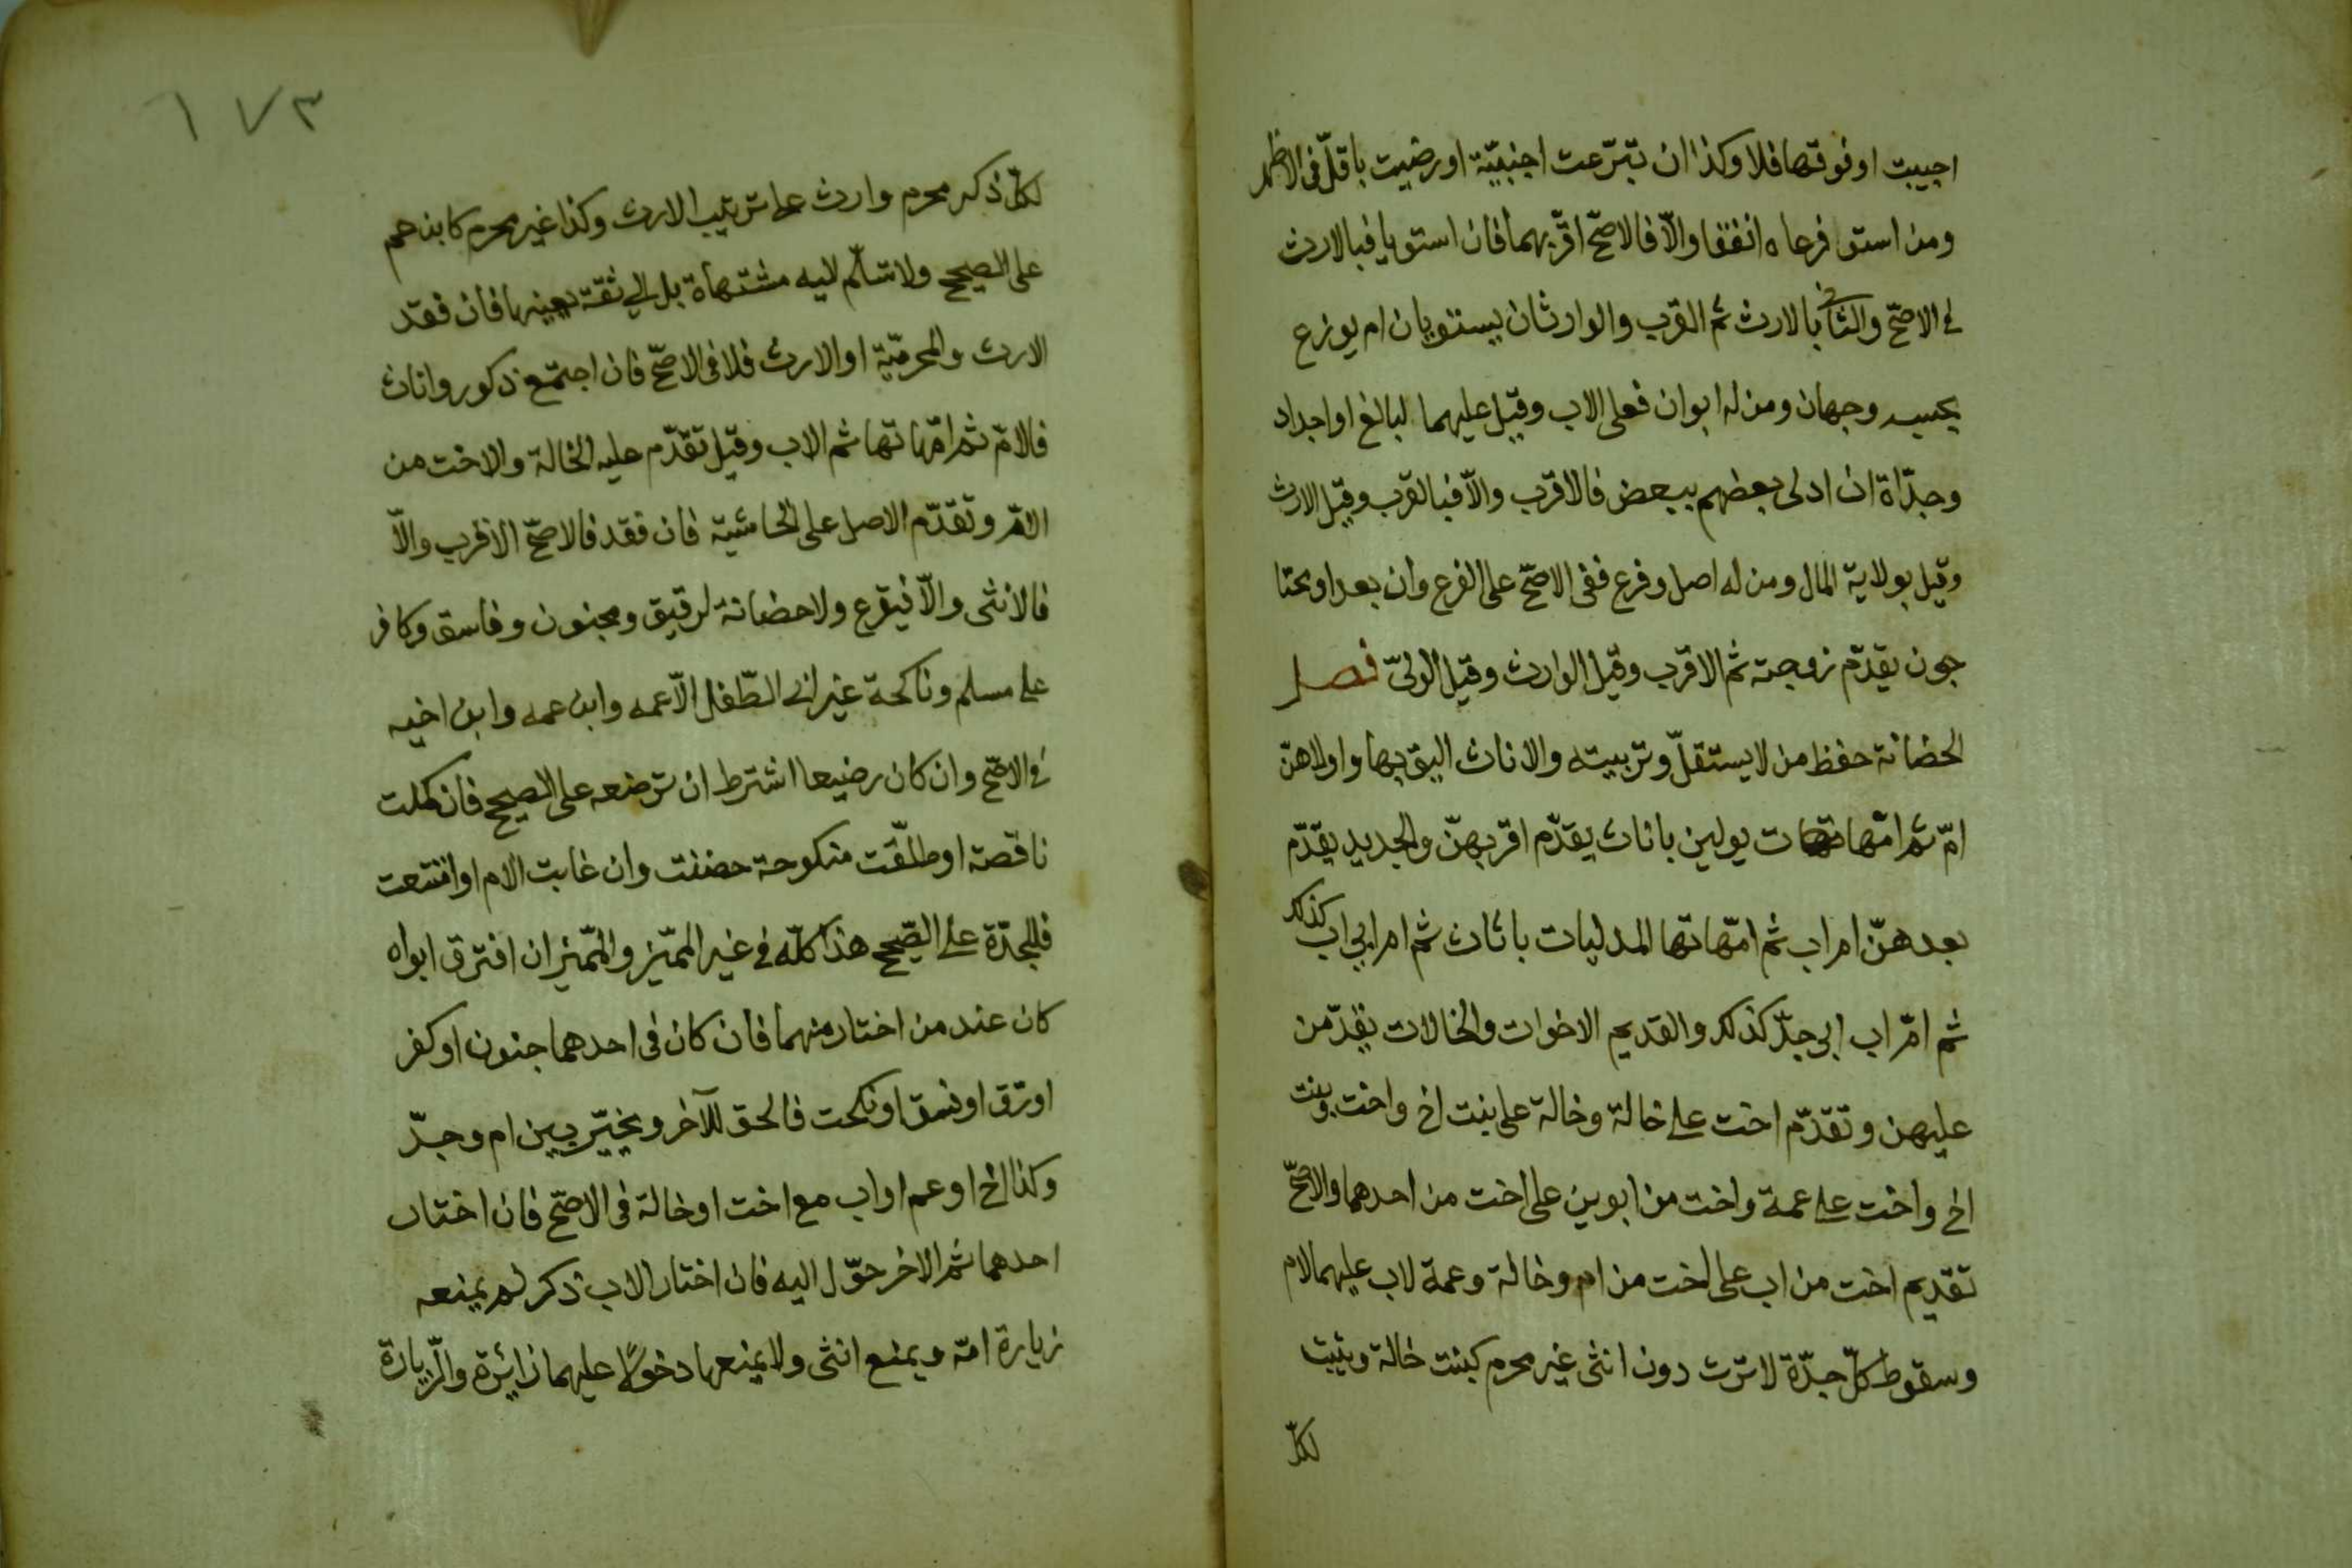 اجيبت اوفوقها فلا وكذا ان تبرّعت اجنبيّة اورضيت باقلّ فى الاظهر
ومن استوا فرعاه انفقا والّا فالاصحّ اقربهما فان استويا فبالارث
فى الاصحّ والثانى بالارث ثم القرب والوارثان يستويان ام يوزع
بحسبه وجهان ومن له ابوان فعلى الاب وقيل عليهما لبالغ اواجداد
وجدّاة ان ادلى بعضهم ببعض فالاقرب والّا فبالقرب وقيل الارث
وقيل بولاية المال ومن له اصل وفرع ففى الاصحّ على الفرع وان بعد اومحتا
جون يقدّم زوجته ثم الاقرب وقيل الوارث وقيل الولىّ فصل
الحضانة حفظ من لا يستقلّ وتربيته والاناث اليق بها واولاهنّ
امّ ثم امّهات يدلين باناث يقدّم اقربهنّ والجديد يقدّم
بعدهنّ ام اب ثم امّهاتها المدليات باناث ثم ام ابى اب كذلك
ثم امّ اب ابى جدّ كذلك والقديم الاخوات والخالات يقدّمن
عليهن وتقدّم اخت على خالة وخالة على بنت اخ واخت وبنت
اخ واخت على عمة واخت من ابوين على اخت من احدهما والاصحّ
تقديم اخت من اب على اخت من ام وخالة وعمة لاب عليهما لام
وسقوط كلّ جدّة لا ترث دون انثى غير محرم كبنت خالة وتثبت
لكلّ
١٧٣
لكلّ ذكر محرم وارث على ترتيب الارث وكذا غير محرم كابن عم
على الصحيح ولا تسلّم ليه مشتهاة بل الى ثقة يعينها فان فقد
الارث والمحرميّة او الارث فلا فى الاصحّ فان اجتمع ذكور واناث
فالامّ ثم امّهاتها ثم الاب وقيل تقدّم عليه الخالة والاخت من
الامّ وتقدّم الاصل على الحاشية فان فقد فالاصحّ الاقرب والّا
فالانثى والّا فيقرع ولا حضانة لرقيق ومجنون وفاسق وكافر
على مسلم وناكحة غير ابى الطّفل الّا عمه وابن عمه وابن اخيه
فى الاصحّ وان كان رضيعا اشترط ان ترضعه على الصحيح فان كملت
ناقصة اوطلّقت منكوحة حضنت وان غابت الام او امتنعت
فللجدّة على الصّحيح هذا كلّه فى غير المميّز والمميّز ان افترق ابواه
كان عند من اختار منهما فان كان فى احدهما جنون اوكفر
اورق اوفسق اونكحت فالحق للآخر ويخيّر بين ام وجدّ
وكذا اخ اوعم اواب مع اخت اوخالة فى الاصحّ فان اختار
احدهما ثم الاخر حوّل اليه فان اختار الاب ذكر لم يمنعه
زيارة امّه ويمنع انثى ولا يمنعها دخولًا عليهما زائرة والزّيارة